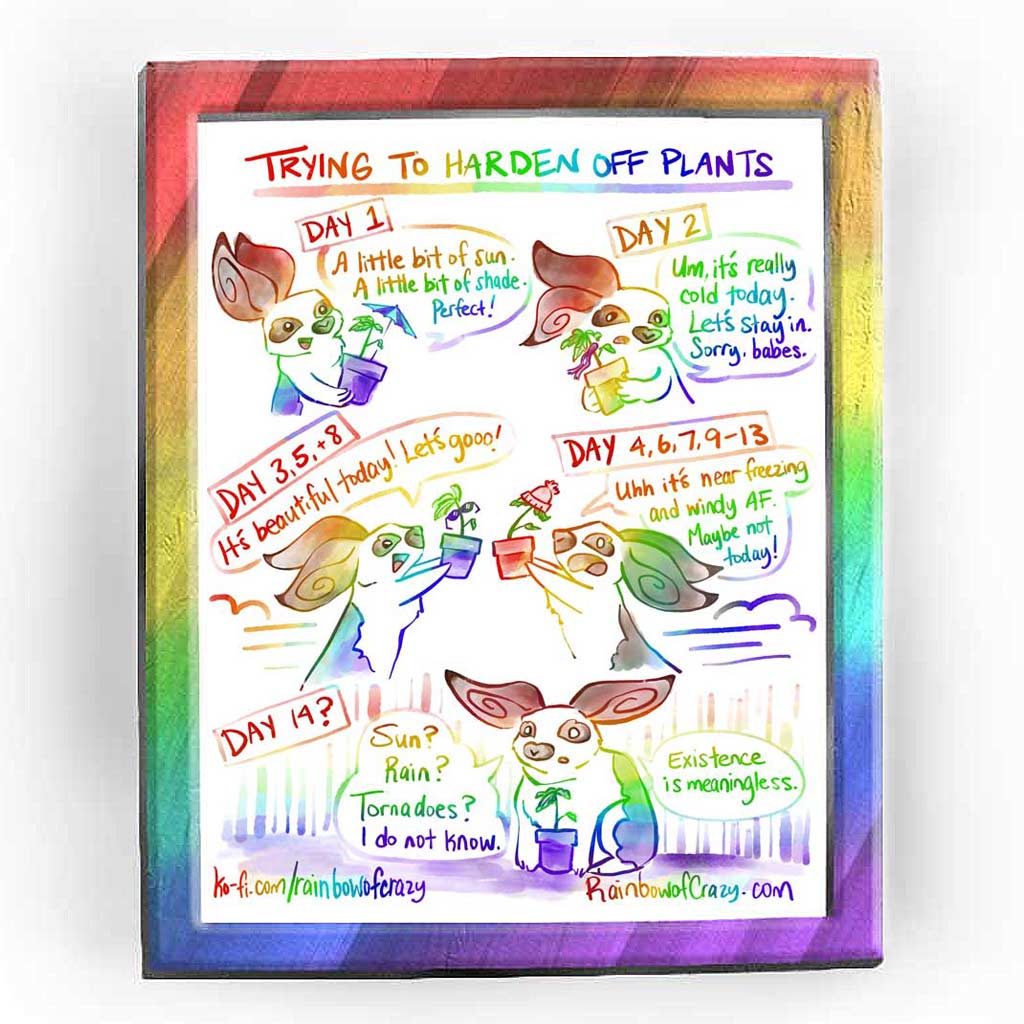 TRYING TO HARDEN OFF PLANTS
DAY 1
A little bit of sun.
A little bit of shade.
Perfect!
DAY 2
Um, it's really
cold today.
Let's stay in.
Sorry, babes.
DAY 3,5,+8
It's beautiful today! Let's gooo!
DAY 4,6,7,9-13
Uhh it's near freezing
and windy AF.
Maybe not
today!
DAY 14?
Sun?
Rain?
Tornadoes?
I do not know.
Existence
is meaningless.
ko-fi.com/rainbowofcrazy
RainbowofCrazy.com